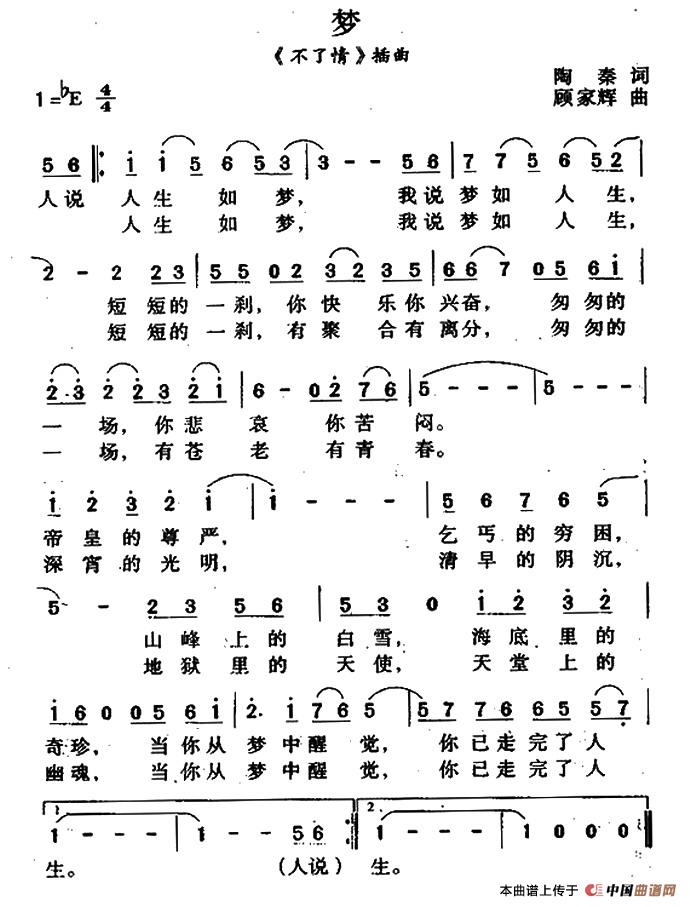 梦
《不了情》插曲
陶秦 词
1=♭E 4/4
顾家辉 曲
5 6 1 1 5 6 5 3 3 - - 5 6 7 7 5 6 5 2
人说 人生 如 梦, 我说 梦如 人 生,
人生 如 梦, 我说 梦如 人 生,
2 - 2 2 3 5 5 0 2 3 2 3 5 6 6 7 0 5 6 1
短 短的 一刹, 你 快 乐你 兴奋, 匆 匆的
短 短的 一刹, 有 聚 合有 离分, 匆 匆的
2·3 2 2 3 2 1 6 - 0 2 7 6 5 - - - 5 - - -
一 场, 你悲 哀 你苦 闷。
一 场, 有苍 老 有青 春。
1 2 3 2 1 1 - - - 5 6 7 6 5
帝皇的尊严, 乞丐的穷困,
深宵的光明, 清早的阴沉,
5 - 2 3 5 6 5 3 0 1 2 3 2
山峰 上的 白雪, 海底 里的
地狱 里的 天使, 天堂 上的
1 6 0 0 5 6 1 2· 1 7 6 5 5 7 7 6 0 6 5 5 7
奇珍, 当 你从 梦 中醒 觉, 你已走 完了人
幽魂, 当 你从 梦 中醒 觉, 你已走 完了人
1. 2.
1 - - - 1 - - 5 6 1 - - - 1 0 0 0
生。 (人说) 生。
本曲谱上传于 中国曲谱网